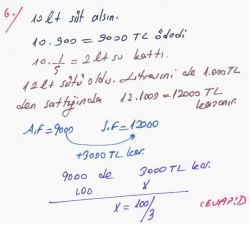 6./ 12 lt süt alsın.
10.900 = 9000 TL ödedi
10. 1/5 = 2 lt su kattı.
12 lt sütü oldu. Litresini de 1.000 TL
den sattığında 12.1000 = 12000 TL
kazanır.
A.F = 9000 S.F = 12000
+3000 TL kar.
9000 de 3000 TL kar.
100 x
x = 100/3
CEVAP: D